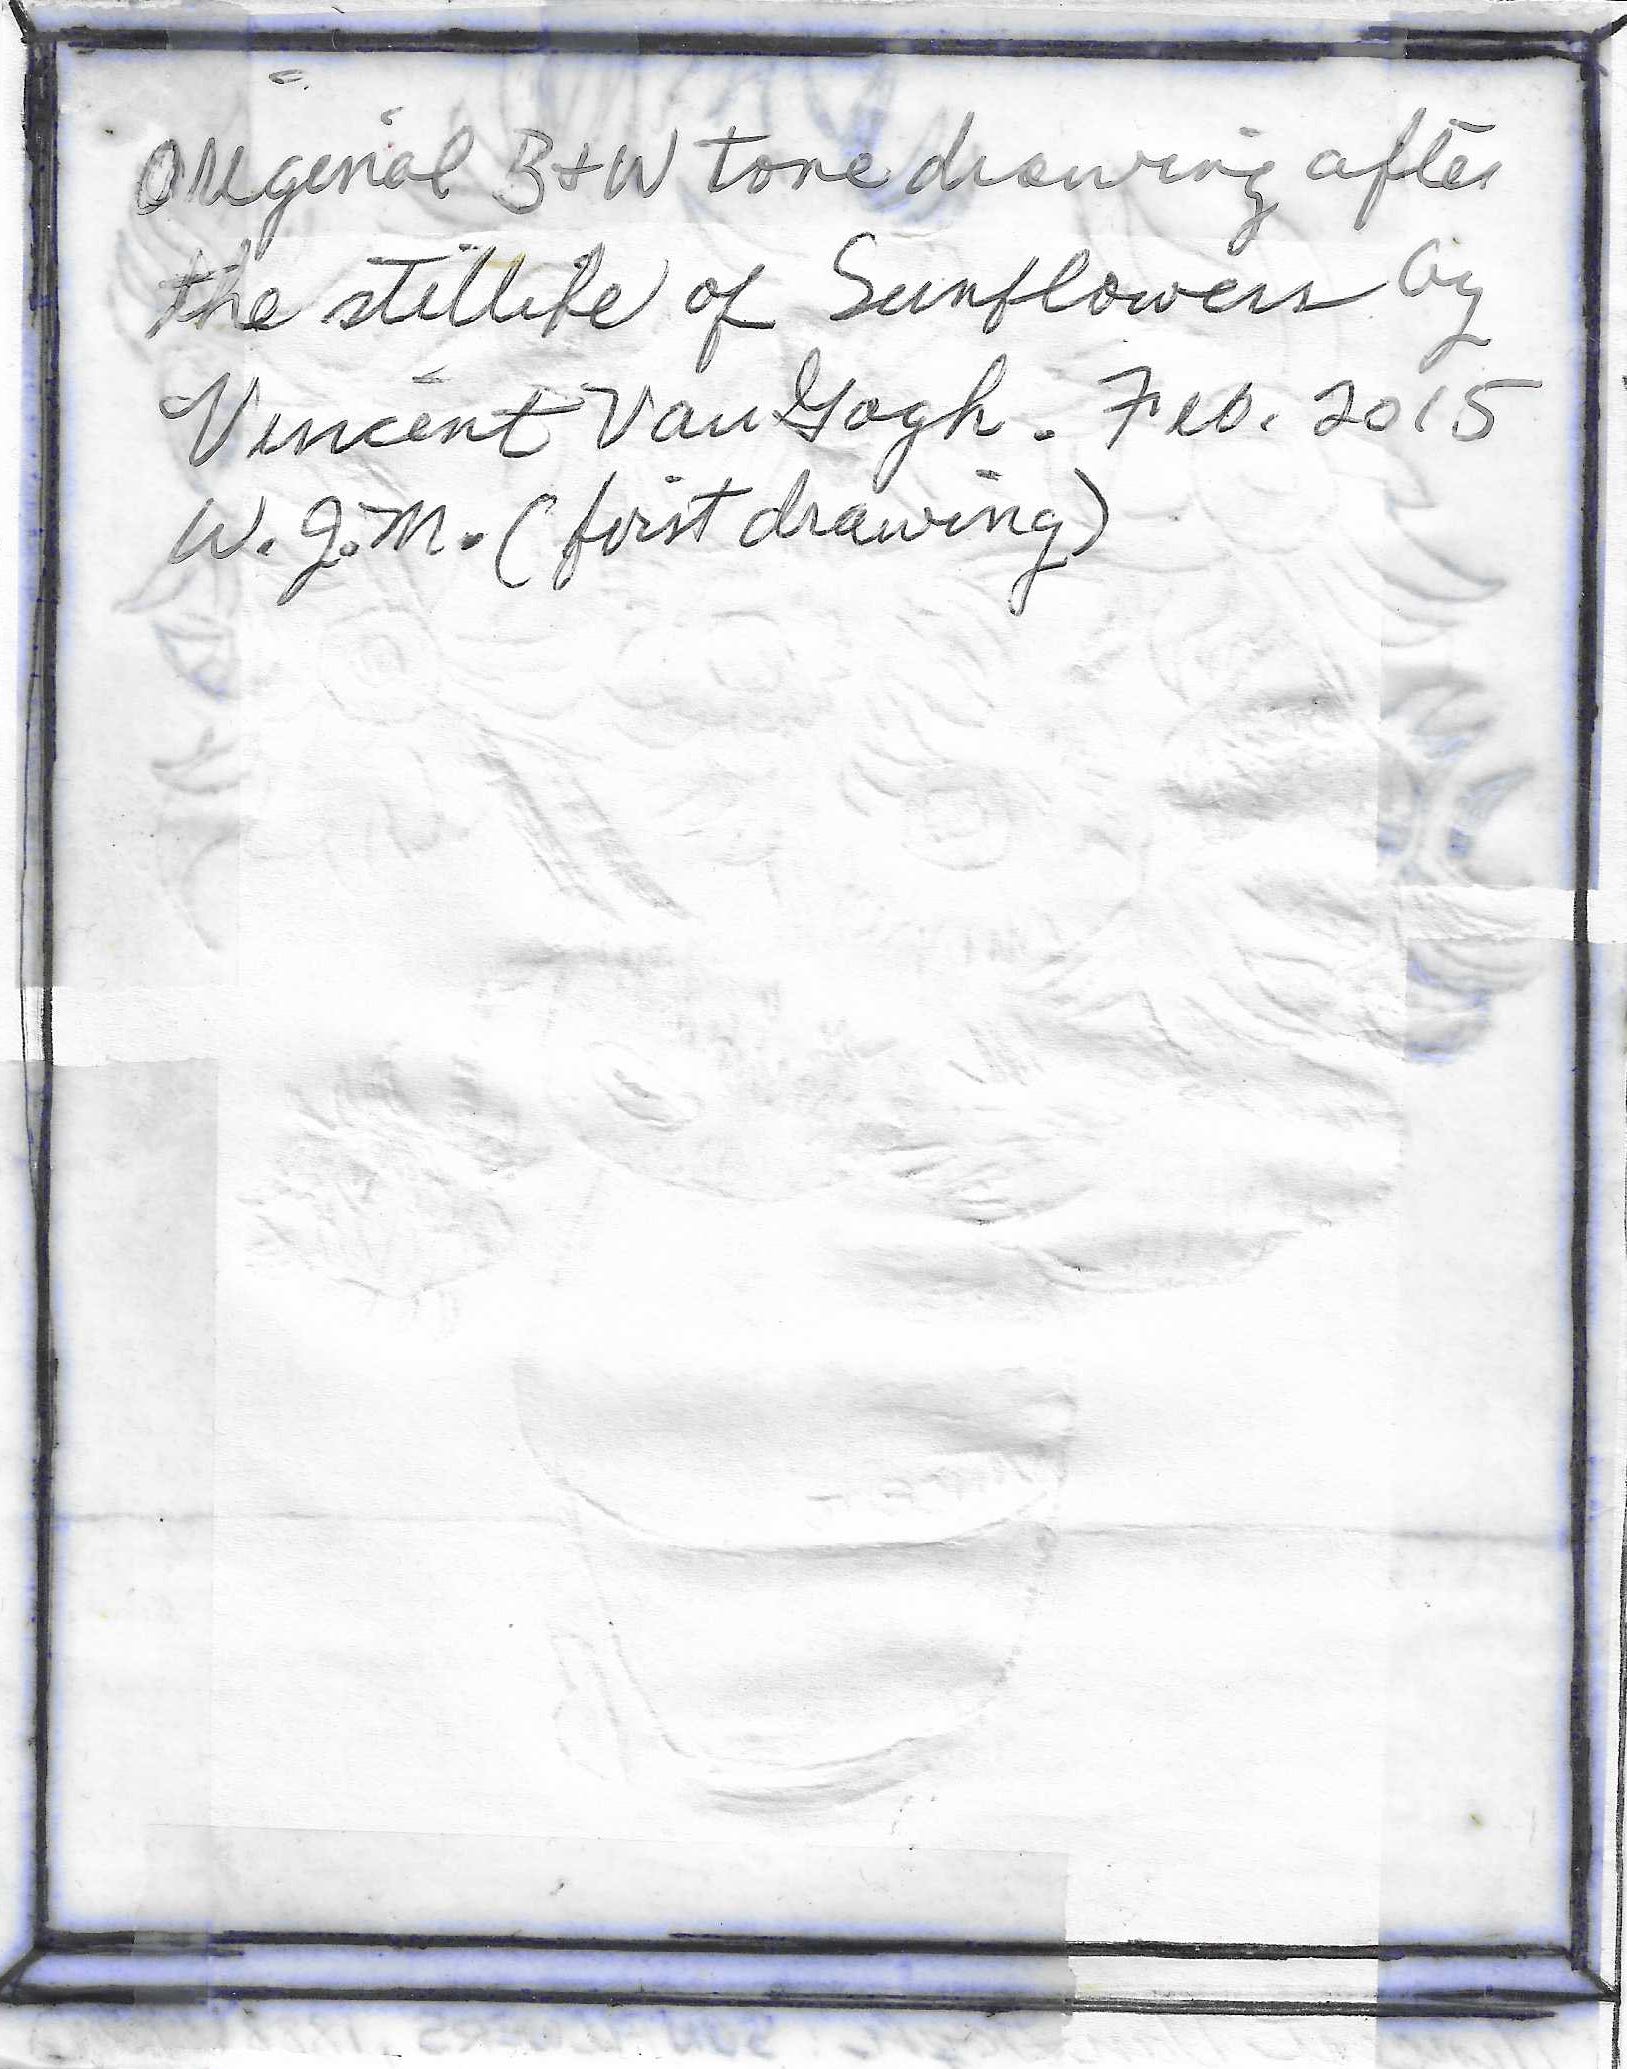 Original B+W tone drawing after
the stillife of Sunflowers by
Vincent Van Gogh. Feb. 2015
W.J.M. (first drawing)
SUNFLOWERS. 1888